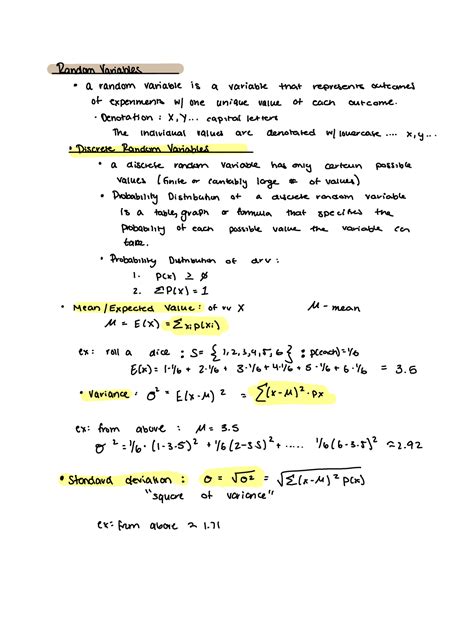 Random Variables
• a random variable is a variable that represents outcomes
of experiments w/ one unique value of each outcome.
• Denotation: X, Y... capital letters
The individual values are denoted w/ lowercase .... x, y...
• Discrete Random Variables
• a discrete random variable has only certain possible
values (finite or cantably large # of values)
• Probability Distribution of a discrete random variable
is a table, graph or formula that specifies the
probability of each possible value the variable can
take.
• Probability Distribution of drv:
1. P(x) ≥ 0
2. ΣP(x) = 1
• Mean/Expected Value: of rv X μ - mean
μ = E(X) = Σxip(xi)
ex: roll a dice: S= {1,2,3,4,5,6}: p(each)=1/6
E(x) = 1·1/6 + 2·1/6 + 3·1/6 + 4·1/6 + 5·1/6 + 6·1/6 = 3.5
• Variance: σ² = E(x-μ)² = Σ(x-μ)²·px
ex: from above: μ = 3.5
σ² = 1/6·(1-3.5)² + 1/6(2-3.5)² + ..... 1/6(6-3.5)² ≈ 2.92
• Standard deviation: σ = √σ² = √Σ(x-μ)²p(x)
"square of variance"
ex: from above ≈ 1.71